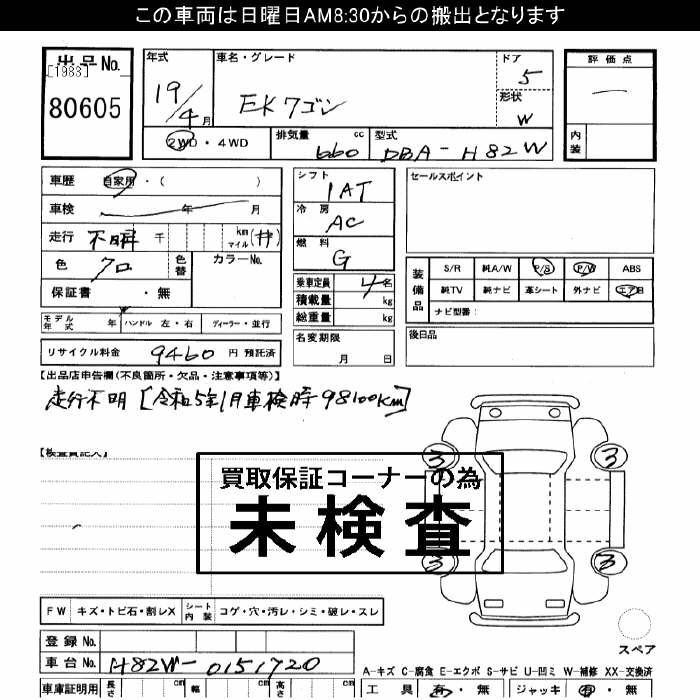 この車両は日曜日AM8:30からの搬出となります
出品No.
[1983]
80605
年式
19/4月
車名・グレード
EKワゴン
ドア
5
形状
W
評価点
内装
2WD・4WD
排気量 660 cc
型式 DBA-H82W
車歴 自家用・( )
車検 年 月
走行 不明 千 km マイル (#)
色 クロ 色替
カラーNo.
保証書 ・無
シフト
1AT
冷房
AC
燃料
G
乗車定員 4名
積載量 kg
総重量 kg
名変期限
月 日
セールスポイント
装備品
S/R 純A/W P/S P/W ABS
純TV 純ナビ 革シート 外ナビ エアB
ナビ型番:
後日品
モデル年式 年
ハンドル 左・右
ディーラー・並行
リサイクル料金 9460 円 預託済
【出品店申告欄(不良箇所・欠品・注意事項等)】
走行不明 [令和5年1月車検時98100km]
【検査員記入】
買取保証コーナーの為
未検査
3 3
3 3
スペア
FW キズ・トビ石・割レX
シート内装 コゲ・穴・汚レ・シミ・破レ・スレ
登録No.
車台No. H82W-0151720
A-キズ C-腐食 E-エクボ S-サビ U-凹ミ W-補修 XX-交換済
車庫証明用 長さ cm 幅 cm 高さ cm
工具 有・無 ジャッキ 有・無